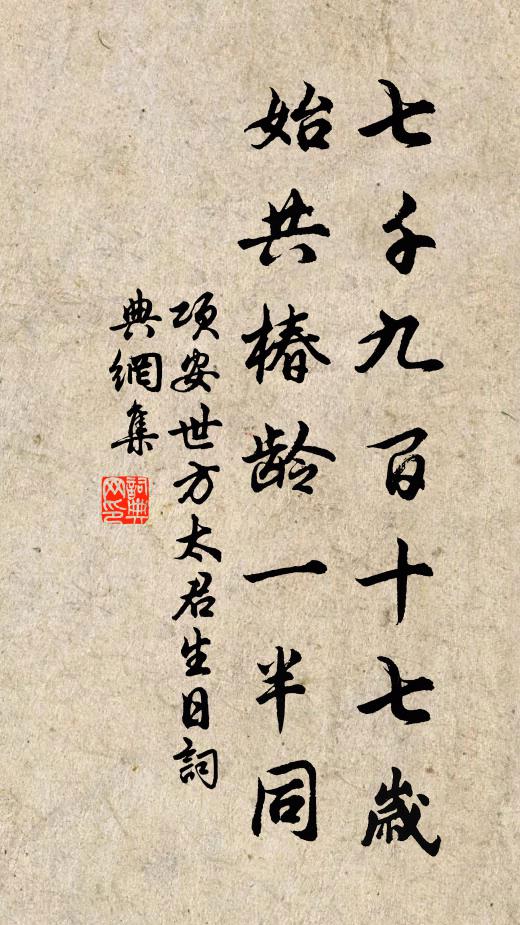 七千九百十七歲
始共椿龄一半同
項安世方太君生日詞
典網集
詞典
网印